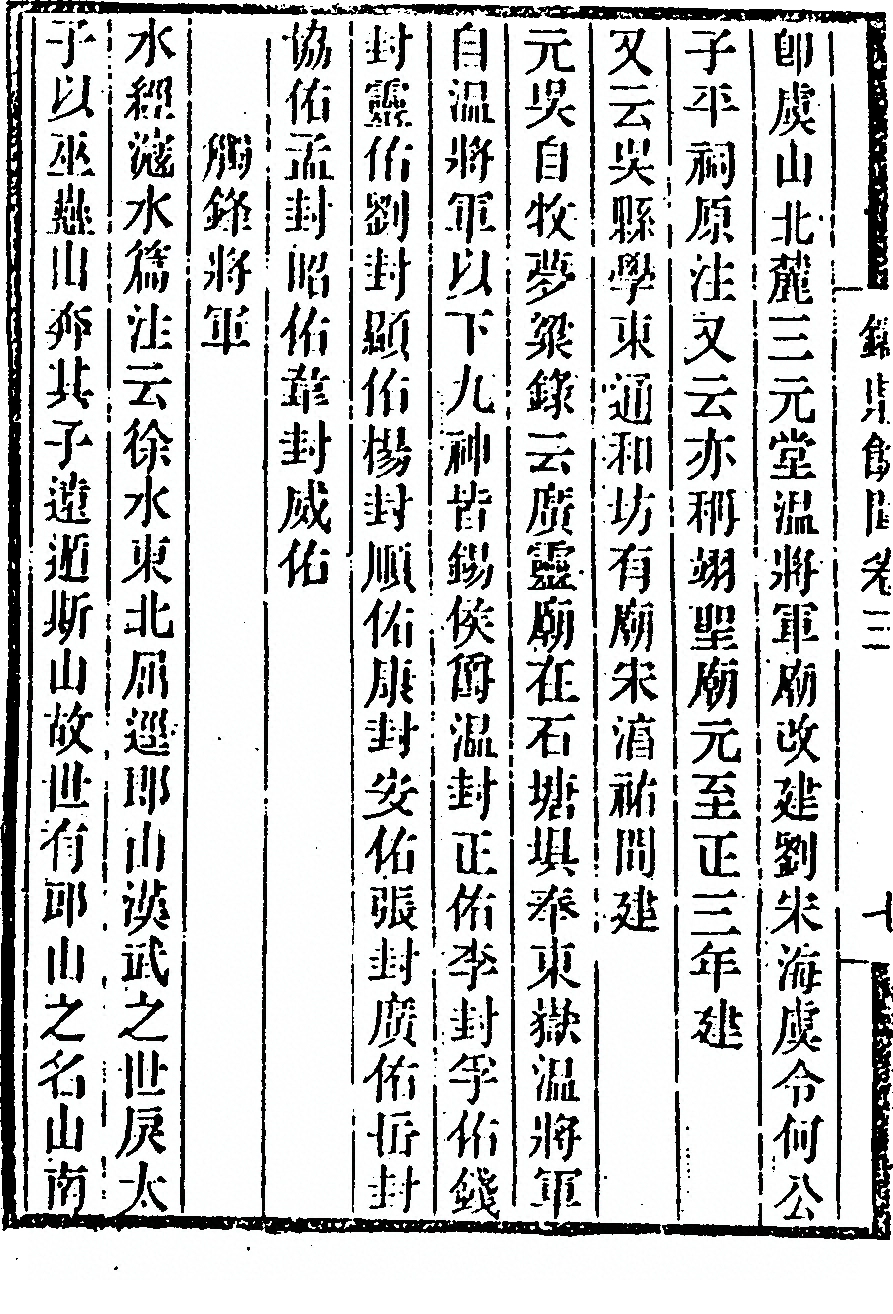 卽虞山北麓三元堂温將軍廟改建劉朱海虞令何公
子平祠原注又云亦稱翊聖廟元至正三年建
又云吳縣學東通和坊有廟宋淳祐間建
元吳自牧夢粱錄云廣靈廟在石塘垻奉東嶽温將軍
自温將軍以下九神皆錫侯爵温封正佑李封孚佑錢
封靈佑劉封顯佑楊封順佑康封安佑張封廣佑岳封
協佑孟封昭佑韋封威佑
觸鋒將軍
水經㴲水篇注云徐水東北屈逕郎山漢武之世戾太
子以巫蠱出奔其子遠遁斯山故世有郎山之名山南
卷三